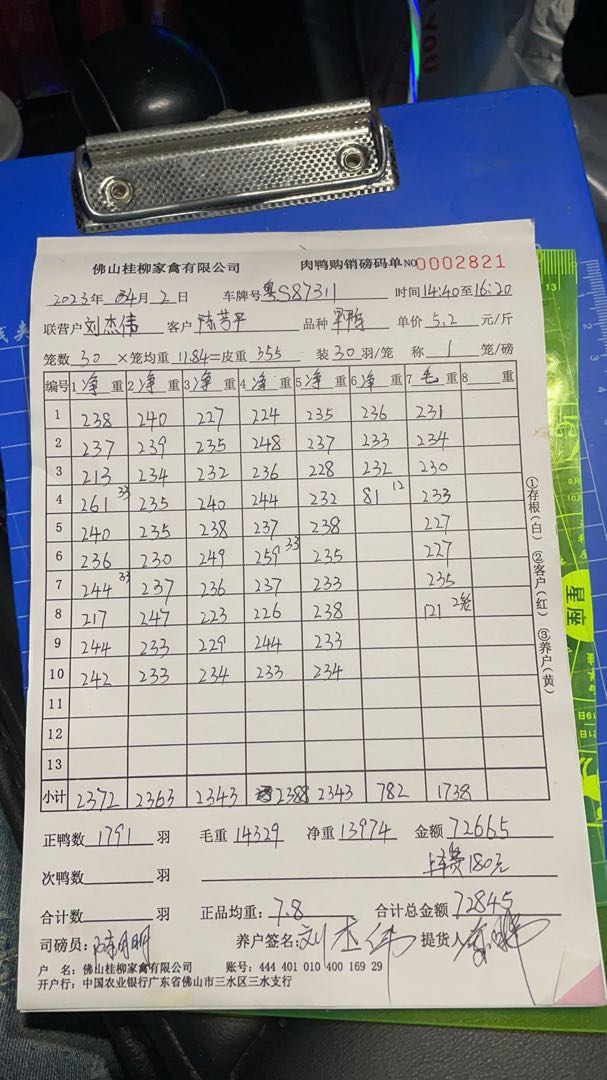 佛山桂柳家禽有限公司 肉鸭购销磅码单 NO 0002821
2023年 04月 2日 车牌号 粤S87311 时间 14:40至16:20
联营户 刘杰伟 客户 陈芳平 品种 单价 5.2 元/斤
笼数 30 ×笼均重 11.84=皮重 355 装 30 羽/笼 称 1 笼/磅
编号 1 净 重 2 净 重 3 净 重 4 净 重 5 净 重 6 净 重 7 毛 重 8 重
1 238 240 227 224 235 236 231
2 237 239 235 248 237 233 234
3 213 234 232 236 228 232 230
4 261 33 235 240 244 232 81 12 233
5 240 235 238 237 238 227
6 236 230 249 259 33 235 227
7 244 33 237 236 237 233 235
8 217 247 223 226 238 121 2笼
9 244 233 229 244 233
10 242 233 234 233 234
11
12
13
小计 2372 2363 2343 2388 2343 782 1738
正鸭数 1791 羽 毛重 14329 净重 13974 金额 72665
次鸭数 羽 上车费180元
合计数 羽 正品均重: 7.8 合计总金额 72845
司磅员: 养户签名: 刘杰伟 提货人
户 名: 佛山桂柳家禽有限公司 账号: 444 401 010 400 169 29
开户行: 中国农业银行广东省佛山市三水区三水支行
①存根(白) ②客户(红) ③养户(黄)
星座